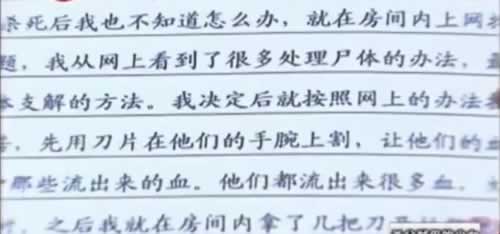 杀死后我也不知道怎么办，就在房间内上网
题，我从网上看到了很多处理尸体的办法，
支解的方法。我决定后就按照网上的办法
，先用刀片在他们的手腕上割，让他们的血
那些流出来的血。他们都流出来很多血，
，之后我就在房间内拿了几把刀